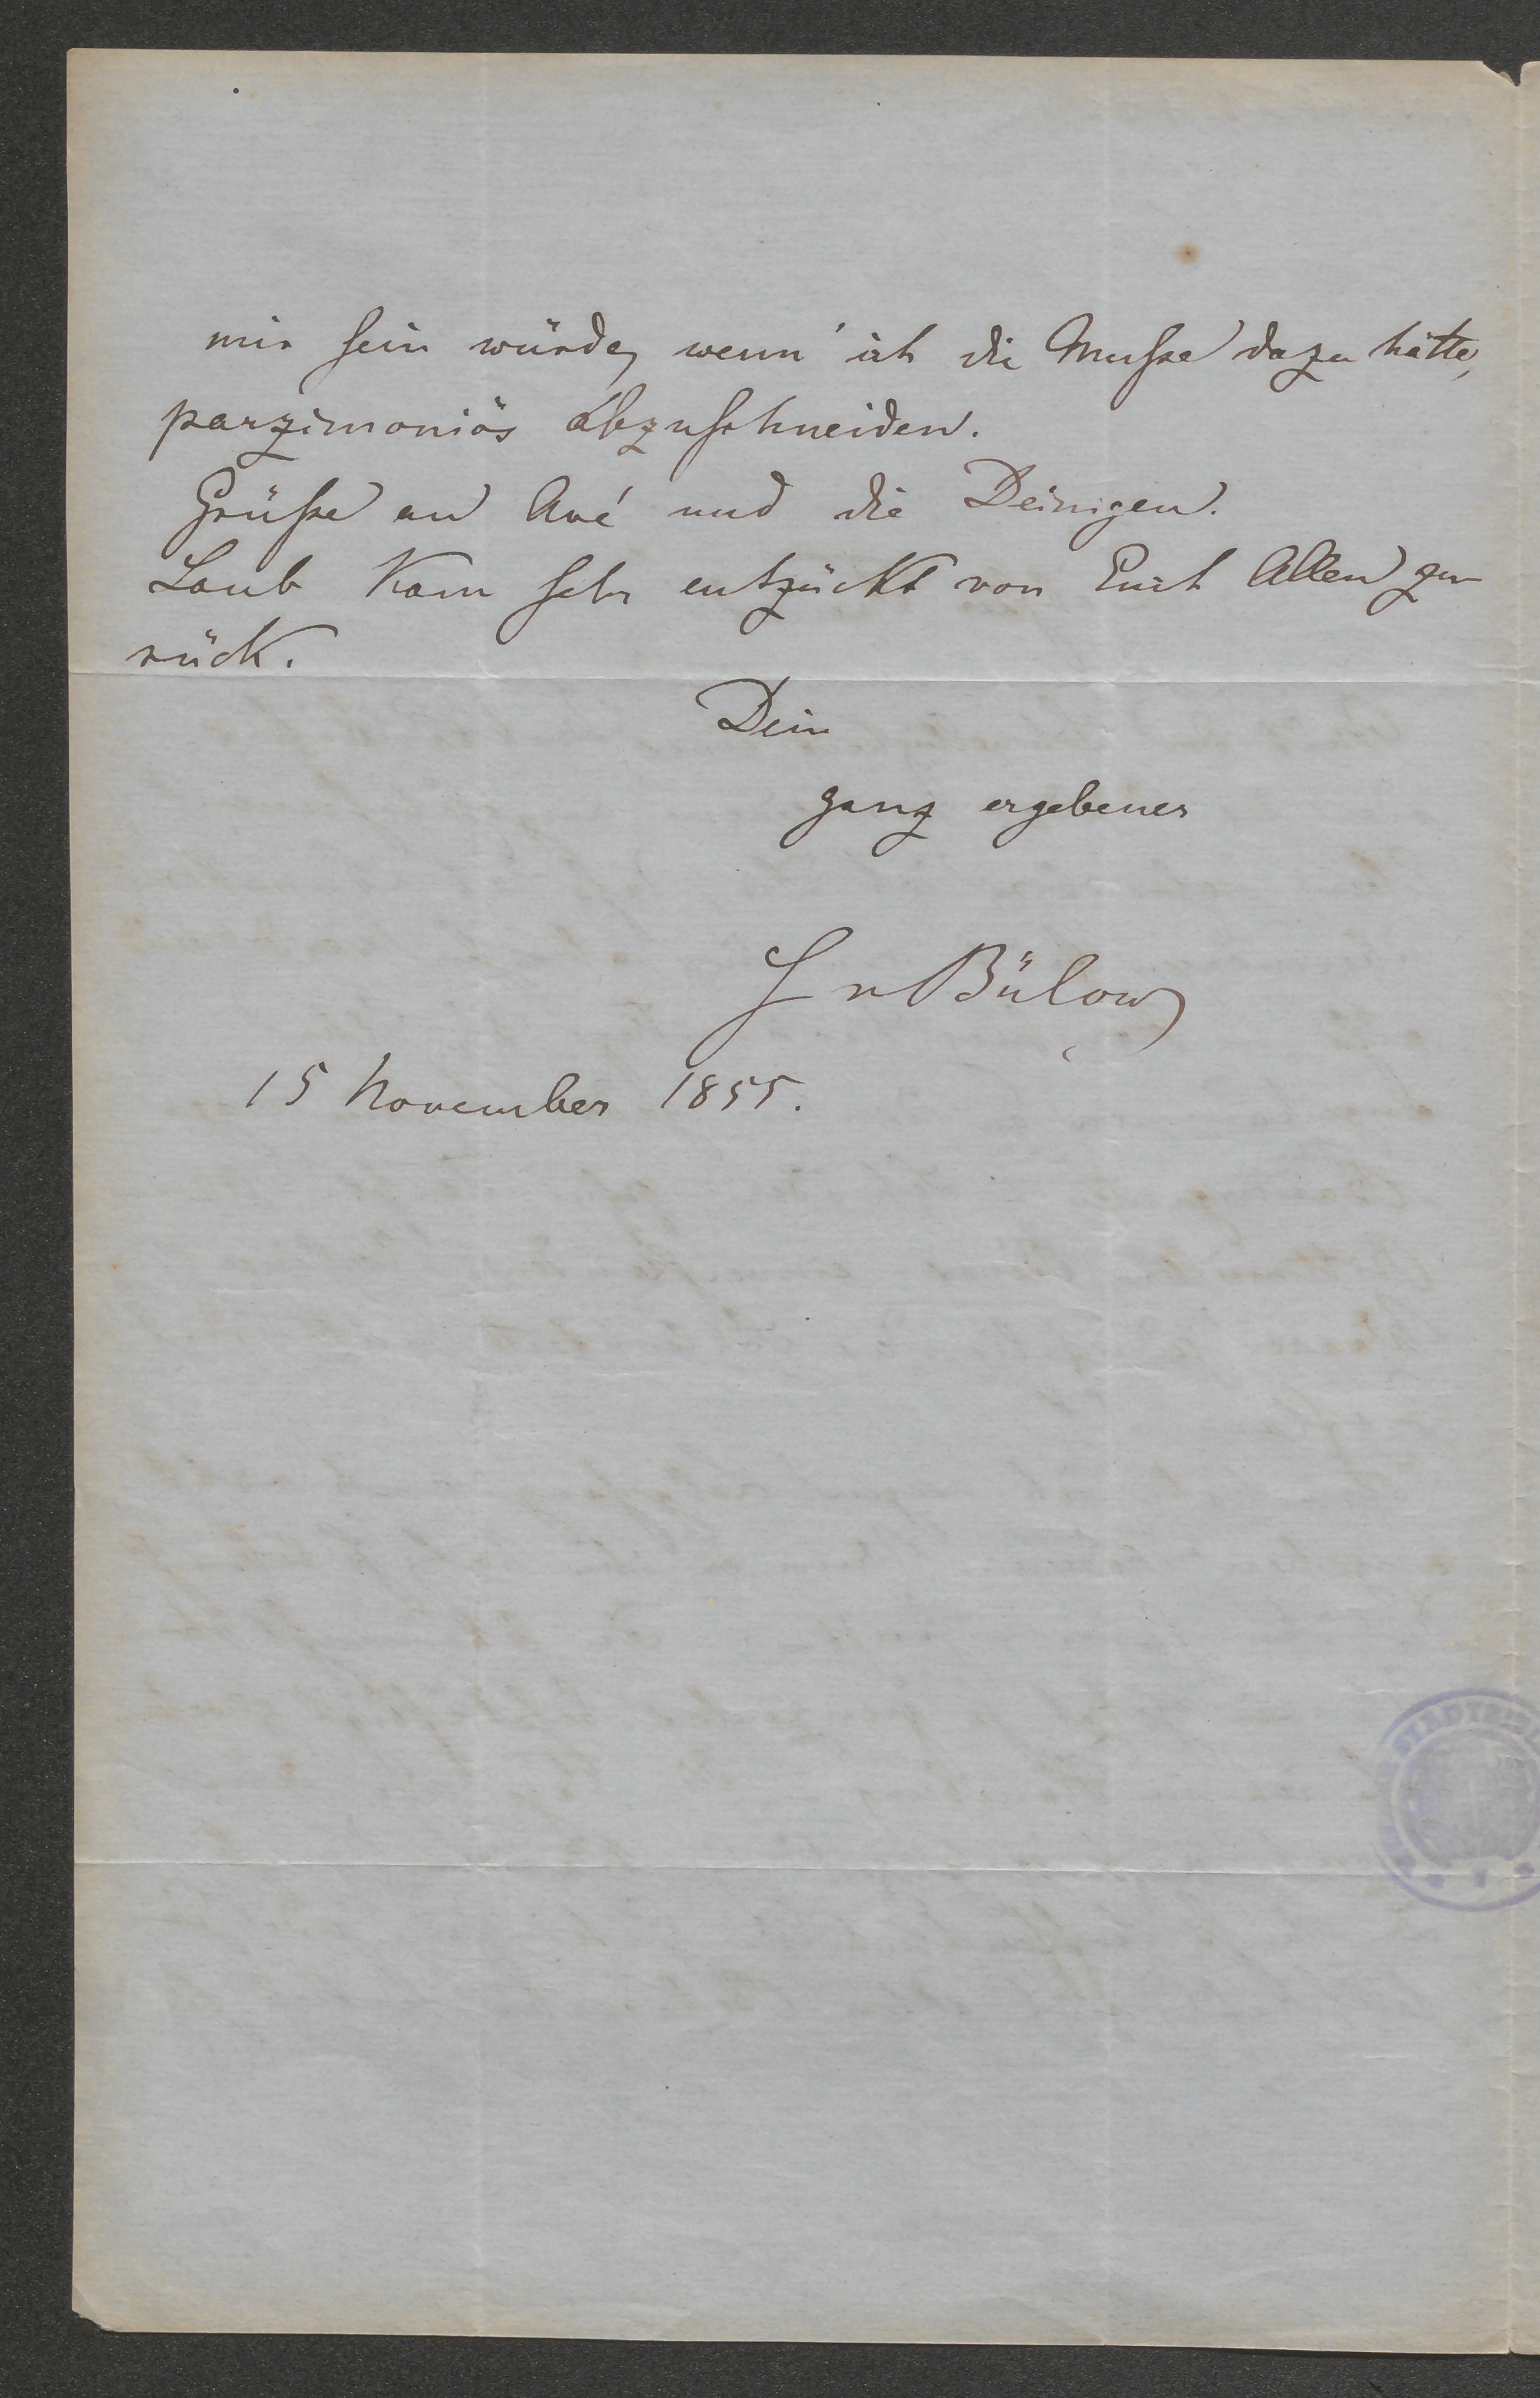 mir sein würde, wenn ich die Musse dazu hätte,
parzimoniös abzuschneiden.
Grüße an Avé und die Deinigen.
Laub kam sehr entzückt von Euch Allen zu-
rück.
Dein
ganz ergebener
H v Bülow
15 November 1855.